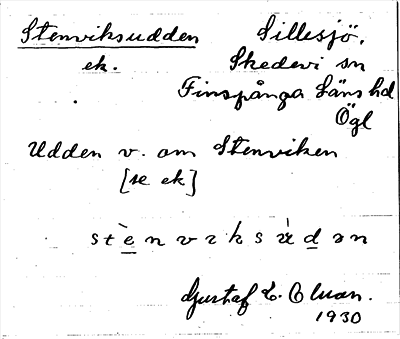 Stenviksudden Sillesjö.
ek. Skedevi sn
Finspånga Läns hd
Ögl
Udden v. om Stenviken
[se ek]
Gustaf E.
1930